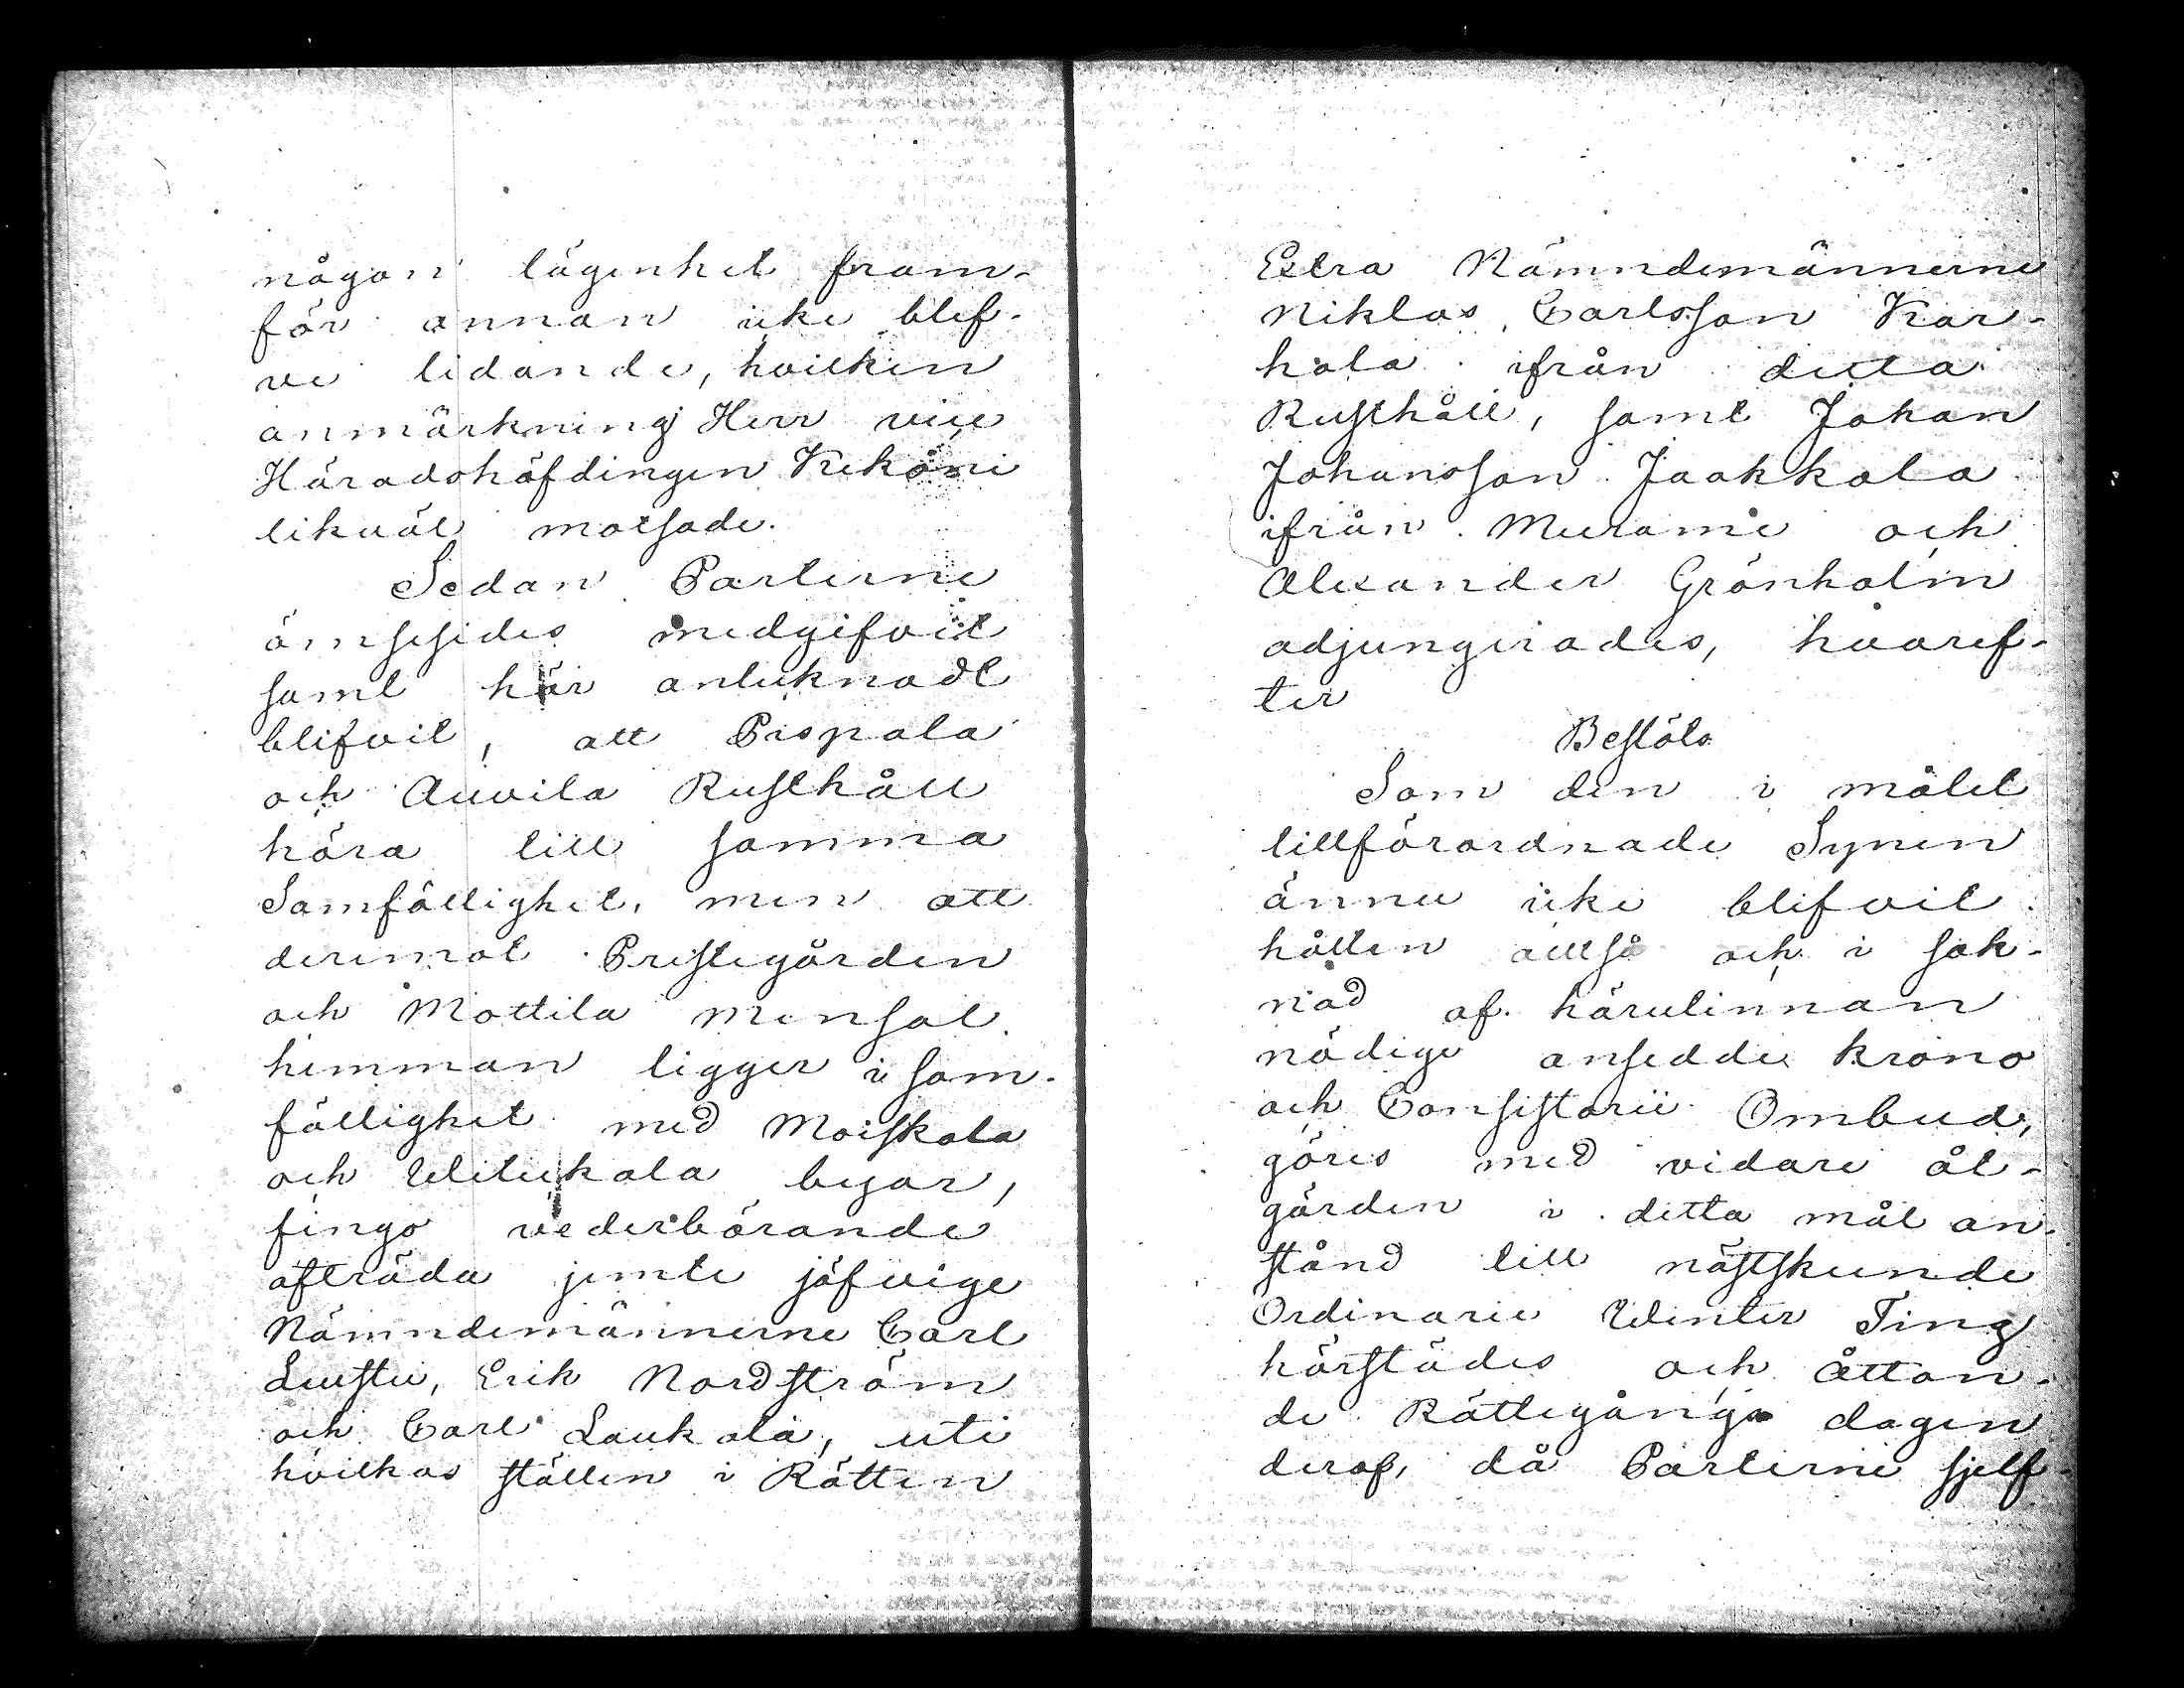 någon lägenhet fram-
för annan icke blef-
ve lidande, hvilken
anmärkning Herr vice
Häradshöfdingen Kekoni
likväl motsade.
Sedan Parterne
ömsesides medgifvit
samt här antecknadt
blifvit, att Pispala
och Auvila Rusthåll
höra till samma
Samfällighet, men att
deremot Prestegården
och Mottila mensal
hemman ligger i sam-
fällighet med Moiskala
och Uitukala byar,
fingo vederbörande
afträda jemte jäfvige
Nämndemännerne Carl
Luustu, Erik Nordström
och Carl Laukala, uti
hvilkas ställen i Rätten
Extra Nämndemännerne
Niklas Carlsson Kar-
hala ifrån detta
Rusthåll, samt Johan
Johansson Jaakkola
ifrån Murame och
Alexander Grönholm
adjungerades, hvaref-
ter
Bestöts
Som den i målet
tillförordnade Synen
ännu icke blifvit
hållen alltså och i sak-
nad af härutinnan
nödige ansedde krono
och Consistorii Ombud,
göres med vidare åt-
gärden i detta mål an-
stånd till nästskunde
Ordinarie Winter Ting
härstädes och Åttan-
de Rättegångs dagen
deraf, då Parterne sjelf-